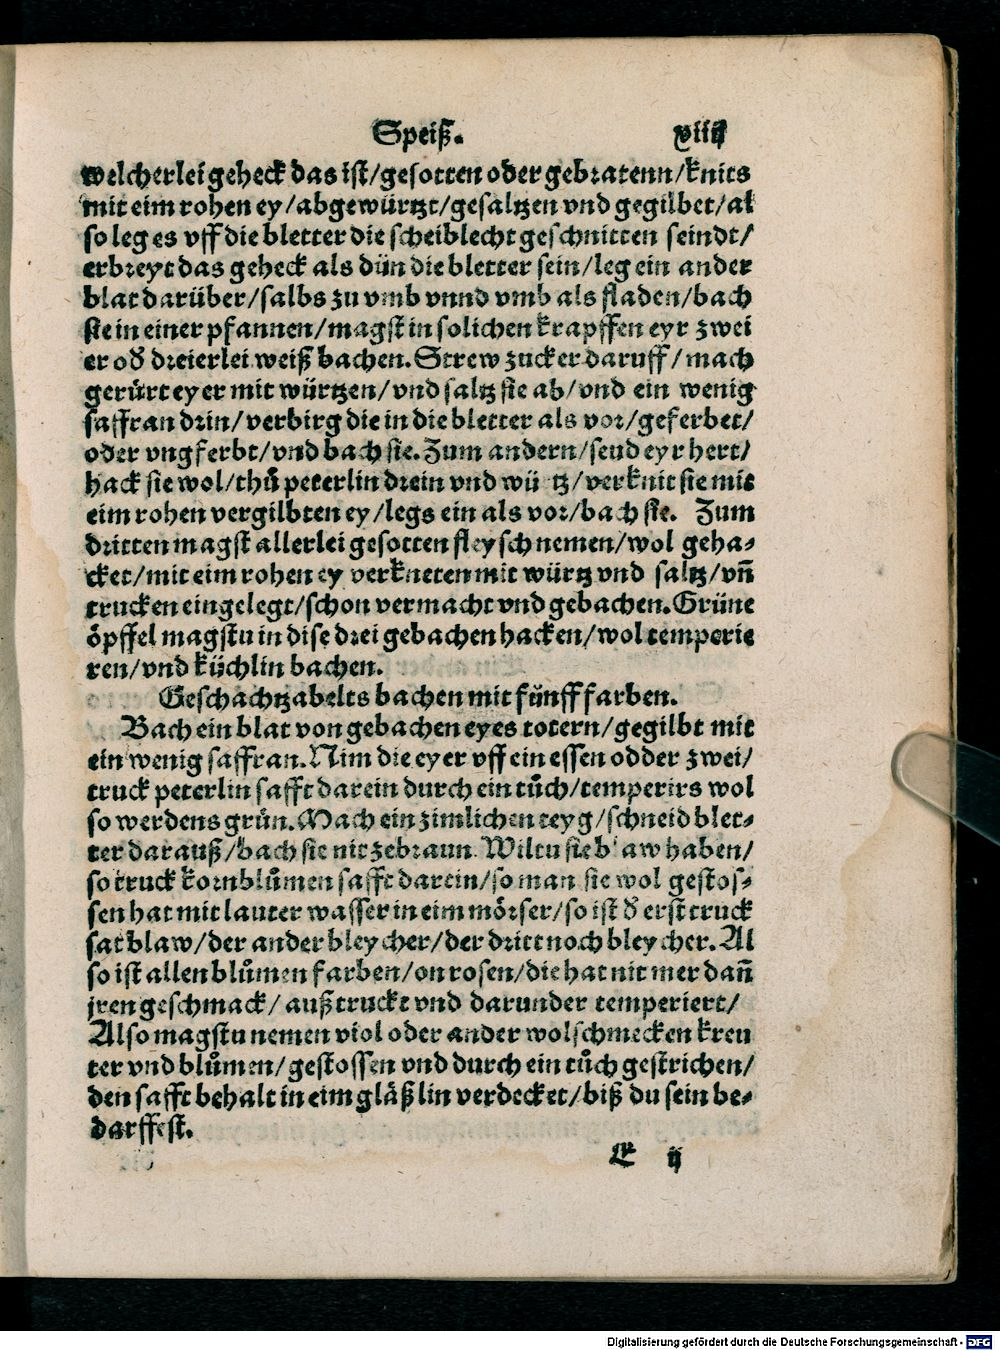 Speiß. viiij
welcherlei geheck das ist/gesotten oder gebratenn/knits
mit eim rohen ey/abgewürtzt/gesaltzen vnd gegilbet/al
so leg es vff die bletter die scheiblecht geschnitten seindt/
erbreyt das geheck als dün die bletter sein/leg ein ander
blat darüber/salbs zu vmb vnnd vmb als fladen/bach
sie in einer pfannen/magst in solichen krapffen eyr zwei
er oď dreierlei weiß bachen. Strew zucker daruff/mach
gerürt eyer mit würtzen/vnd saltz sie ab/vnd ein wenig
saffran drin/verbirg die in die bletter als vor/geferbet/
oder vngferbt/vnd bach sie. Zum andern/seud eyr hert/
hack sie wol/thů peterlin drein vnd wü tz/verknit sie mit
eim rohen vergilbten ey/legs ein als vor/bach sie. Zum
dritten magst allerlei gesotten fleysch nemen/wol geha⸗
cket/mit eim rohen ey verkneten mit würtz vnd saltz/vñ
trucken eingelegt/schon vermacht vnd gebachen. Grüne
öpffel magstu in dise drei gebachen hacken/wol temperie
ren/vnd küchlin bachen.
Geschachtzabelts bachen mit fünff farben.
Bach ein blat von gebachen eyes totern/gegilbt mit
ein wenig saffran. Nim die eyer vff ein essen odder zwei/
truck peterlin safft darein durch ein tůch/temperirs wol
so werdens grün. Mach ein zimlichen teyg/schneid blet⸗
ter darauß/bach sie nit zebraun. Wiltu sie b aw haben/
so truck kornblůmen safft darein/so man sie wol gestos⸗
sen hat mit lauter wasser in eim mörser/so ist ď erst truck
sat blaw/der ander bleycher/der dritt noch bleycher. Al
so ist allen blůmen farben/on rosen/die hat nit mer dañ
jren geschmack/ außtruckt vnd darunder temperiert/
Also magstu nemen viol oder ander wolschmecken kreu
ter vnd blůmen/gestossen vnd durch ein tůch gestrichen/
den safft behalt in eim gläßlin verdecket/biß du sein be⸗
darffest.
C ij
Digitalisierung gefördert durch die Deutsche Forschungsgemeinschaft - DFG